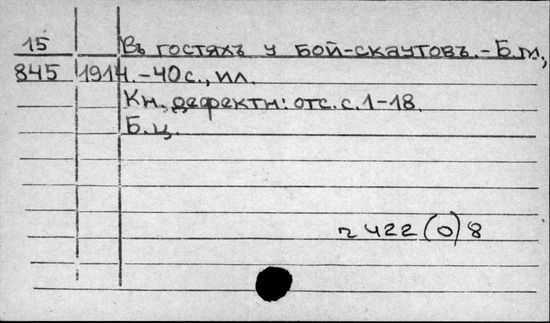 15 Въ гостяхъ у бой-скаутовъ.-Б.м.,
845 1914.-40с., ил.
Кн. дефектн: отс. с. 1-18.
Б.ц.
ч 422 (0) 8